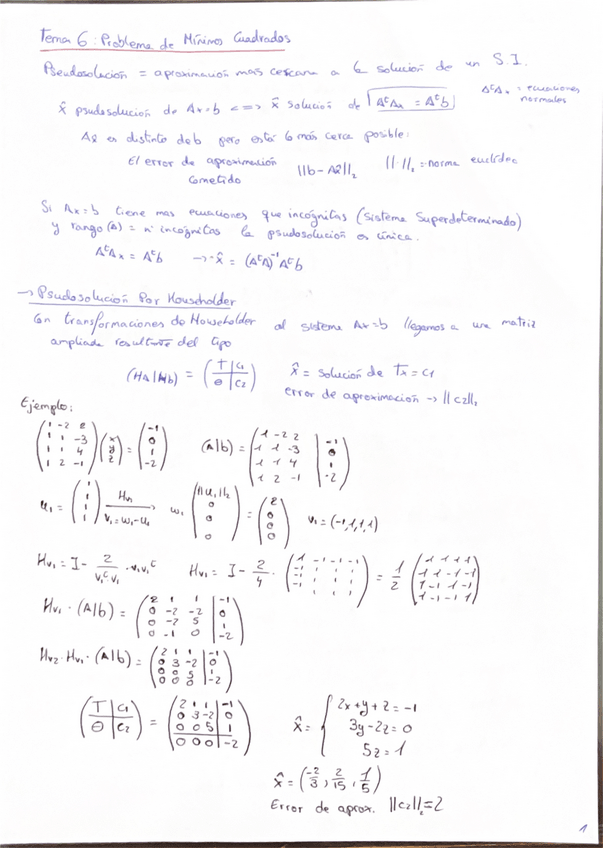 Tema 6: Problema de Mínimos Cuadrados
Pseudosolución = aproximación más cercana a la solución de un S.I.
x̂ psudosolución de Ax=b <=> x̂ solución de AᵗAx = Aᵗb
AᵗAx = ecuaciones normales
Ax̂ es distinto de b pero está lo más cerca posible:
El error de aproximación cometido ||b-Ax̂||₂ ||·||₂ = norma euclídea
Si Ax=b tiene mas ecuaciones que incógnitas (Sistema Superdeterminado)
y rango(A) = nº incógnitas la psudosolución es única.
AᵗAx = Aᵗb → x̂ = (AᵗA)⁻¹Aᵗb
→ Psudosolución Por Householder
Con transformaciones de Householder al sistema Ax=b llegamos a una matriz
ampliada resultante del tipo
(HA|Hb) = (T|c₁ / Θ|c₂) x̂ = solución de Tx = c₁
error de aproximación → ||c₂||₂
Ejemplo:
(1 -2 2 / 1 1 -3 / 1 1 4 / 1 2 -1) (x / y / z) = (-1 / 0 / 1 / -2) (A|b) = (1 -2 2 | -1 / 1 1 -3 | 0 / 1 1 4 | 1 / 1 2 -1 | -2)
u₁ = (1 / 1 / 1 / 1) Hv₁ → v₁=w₁-u₁ w₁ (||u₁||₂ / 0 / 0 / 0) = (2 / 0 / 0 / 0) v₁ = (-1,1,1,1)
Hv₁ = I - 2/(v₁ᵗv₁) · v₁v₁ᵗ Hv₁ = I - 2/4 · (1 -1 -1 -1 / -1 1 1 1 / -1 1 1 1 / -1 1 1 1) = 1/2 (1 1 1 1 / 1 1 -1 -1 / 1 -1 1 -1 / 1 -1 -1 1)
Hv₁ · (A|b) = (2 1 1 | -1 / 0 -2 -2 | 0 / 0 -2 5 | 1 / 0 -1 0 | -2)
Hv₂ · Hv₁ · (A|b) = (2 1 1 | -1 / 0 3 -2 | 0 / 0 0 5 | 1 / 0 0 0 | -2)
(T|c₁ / Θ|c₂) = (2 1 1 | -1 / 0 3 -2 | 0 / 0 0 5 | 1 / 0 0 0 | -2) x̂ = {
2x+y+z=-1
3y-2z=0
5z=1
x̂ = (-2/3, 2/15, 1/5)
Error de aprox. ||c₂||₂=2
1